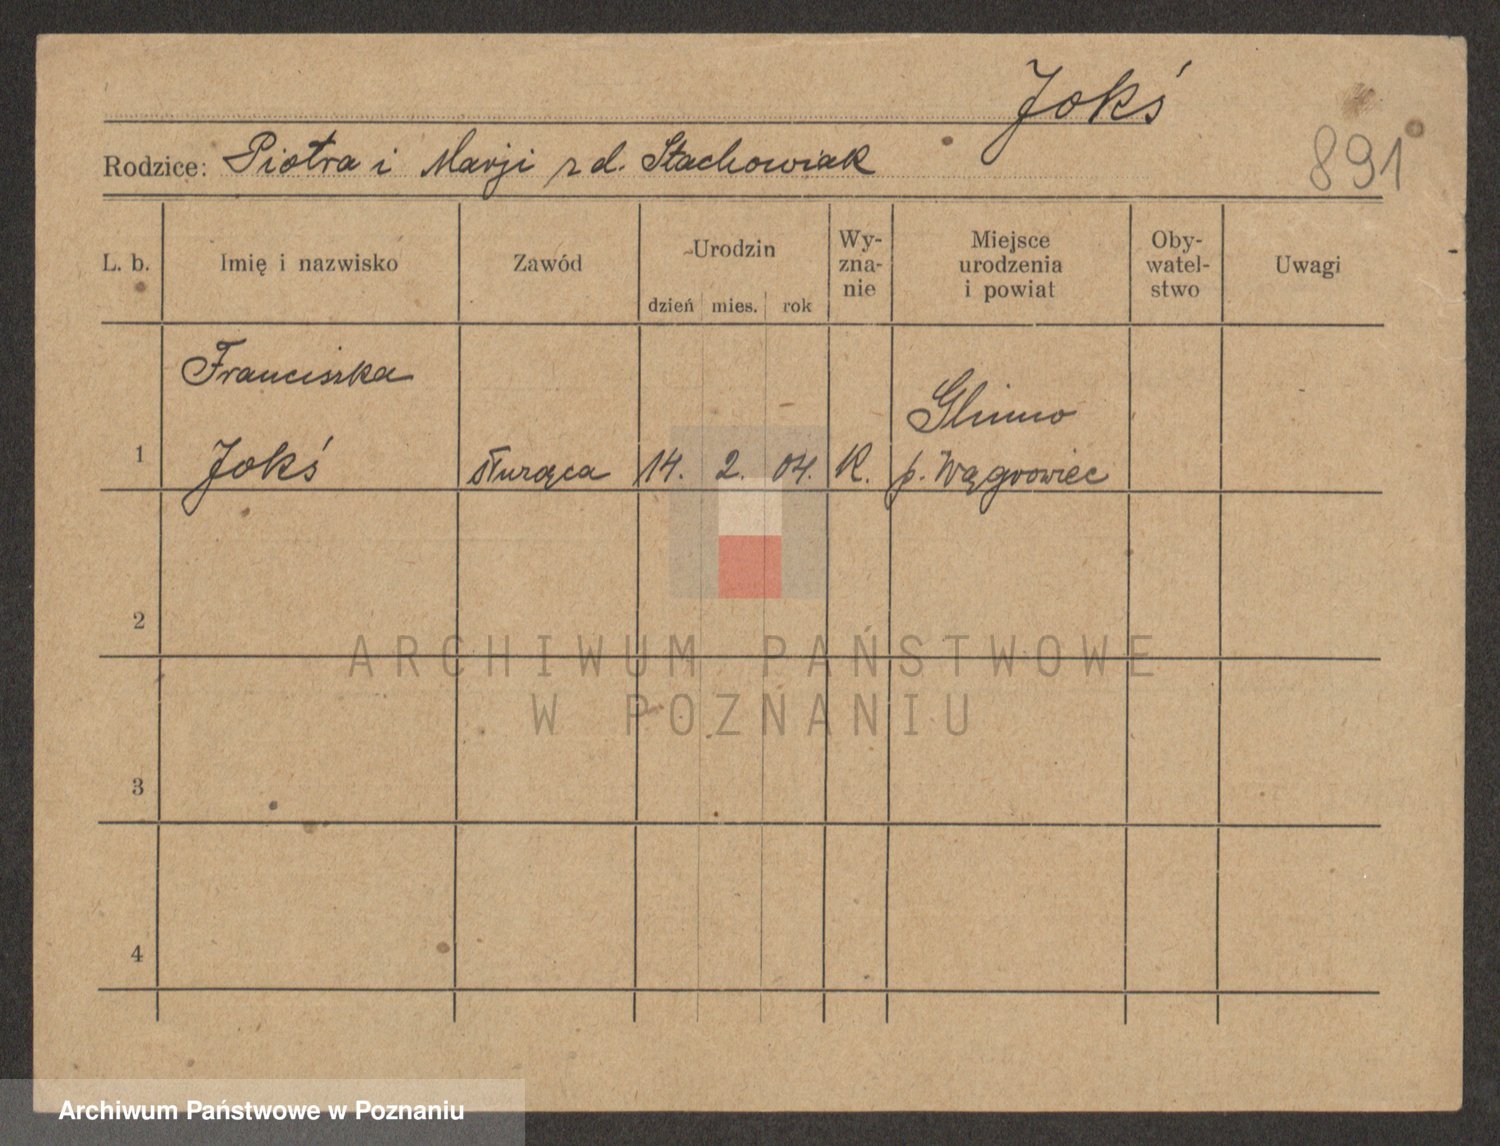 Jokś
Rodzice: Piotra i Marji z d. Stachowiak
891
L. b.
Imię i nazwisko
Zawód
Urodzin
dzień mies. rok
Wy-
zna-
nie
Miejsce
urodzenia
i powiat
Oby-
watel-
stwo
Uwagi
Franciszka
Glinno
1 Jokś służąca 14. 2. 04. K. p. Wągrowiec
2
ARCHIWUM PAŃSTWOWE
W POZNANIU
3
4
Archiwum Państwowe w Poznaniu